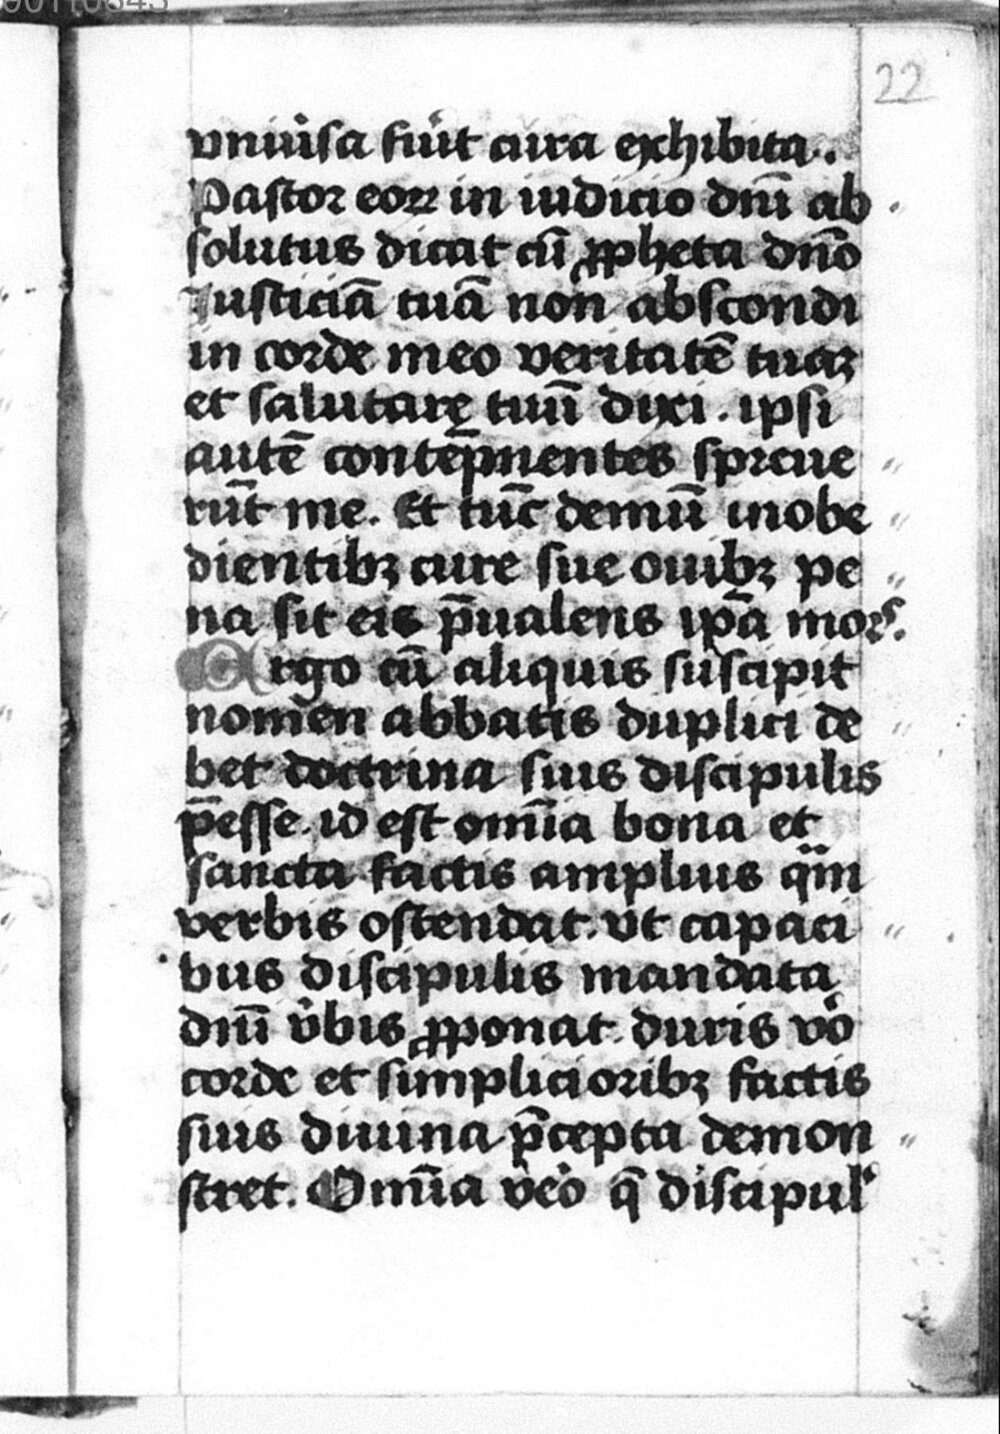 90110843
22
vniũsa fuĩt cura exhibita.
Pastor eoꝝ in iudicio dñi ab
solutus dicat cũ ꝓpheta dño
Iusticiã tuã non abscondi
in corde meo veritatẽ tuaꝫ
et salutarę tuũ dixi. ipsi
autẽ contẽpnentes spreue
rũt me. Et tũc demũ inobe
dientibꝫ cure sue ouibꝫ pe
na sit eis p̃ualens ip̃a mors.
Ergo cũ aliquis suscipit
nomen abbatis duplici de
bet doctrina suis discipulis
p̃esse. id est om̃ia bona et
sancta factis amplius qm̈
verbis ostendat. vt capaci
bus discipulis mandata
dñi v̉bis ꝓponat. duris vỏ
corde et simplicioribꝫ factis
suis diuina p̃cepta demon
stret. Om̃ia vẻo q̃ discipul᷒